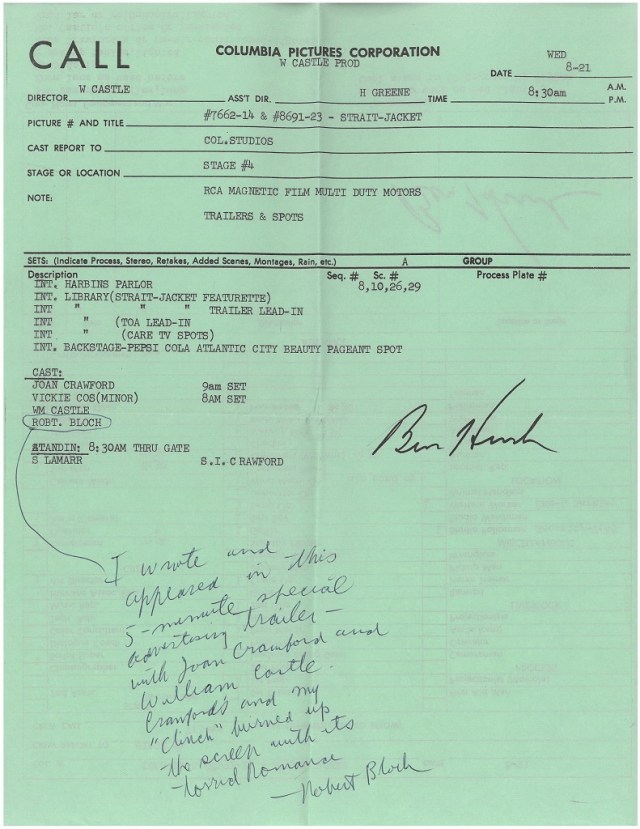 CALL
COLUMBIA PICTURES CORPORATION
W CASTLE PROD
WED
DATE 8-21
DIRECTOR W CASTLE ASS'T DIR. H GREENE TIME 8:30am A.M.
P.M.
PICTURE # AND TITLE #7662-14 & #8691-23 - STRAIT-JACKET
CAST REPORT TO COL.STUDIOS
STAGE OR LOCATION STAGE #4
NOTE: RCA MAGNETIC FILM MULTI DUTY MOTORS
TRAILERS & SPOTS
SETS: (Indicate Process, Stereo, Retakes, Added Scenes, Montages, Rain, etc.) A GROUP
Description Seq. # Sc. # Process Plate #
INT. HARBINS PARLOR 8,10,26,29
INT. LIBRARY(STRAIT-JACKET FEATURETTE)
INT " " " TRAILER LEAD-IN
INT " (TOA LEAD-IN
INT. " (CARE TV SPOTS)
INT. BACKSTAGE-PEPSI COLA ATLANTIC CITY BEAUTY PAGEANT SPOT
CAST:
JOAN CRAWFORD 9am SET
VICKIE COS(MINOR) 8AM SET
WM CASTLE
ROBT. BLOCH
STANDIN: 8:30AM THRU GATE
S LAMARR S.I.C RAWFORD
I wrote and
appeared in this
5-minute special
advertising trailer –
with Joan Crawford and
William Castle.
Crawford's and my
"clinch" burned up
the screen with its
torrid Romance
—Robert Bloch